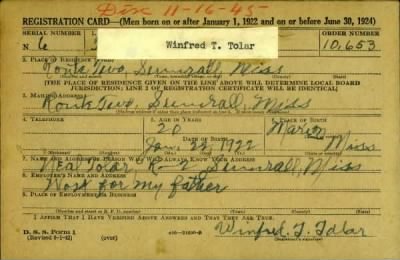 Disc 11-16-45
REGISTRATION CARD—(Men born on or after January 1, 1922 and on or before June 30, 1924)
SERIAL NUMBER ORDER NUMBER
6 Winfred T. Tolar 10,653
2. PLACE OF RESIDENCE
Route Two, Sumrall, Miss
(THE PLACE OF RESIDENCE GIVEN ON THE LINE ABOVE WILL DETERMINE LOCAL BOARD
JURISDICTION; LINE 2 OF REGISTRATION CERTIFICATE WILL BE IDENTICAL)
3. MAILING ADDRESS
Route Two, Sumrall, Miss
4. TELEPHONE 5. AGE IN YEARS 6. PLACE OF BIRTH
20 Marion
DATE OF BIRTH
Jan 22, 1922 Miss
7. NAME AND ADDRESS OF PERSON WHO WILL ALWAYS KNOW YOUR ADDRESS
Tolar, Sumrall, Miss
8. EMPLOYER'S NAME AND ADDRESS
Work for my father
9. PLACE OF EMPLOYMENT OR BUSINESS
I AFFIRM THAT I HAVE VERIFIED ABOVE ANSWERS AND THAT THEY ARE TRUE.
D. S. S. Form 1
(over) Winfred. T. Tolar